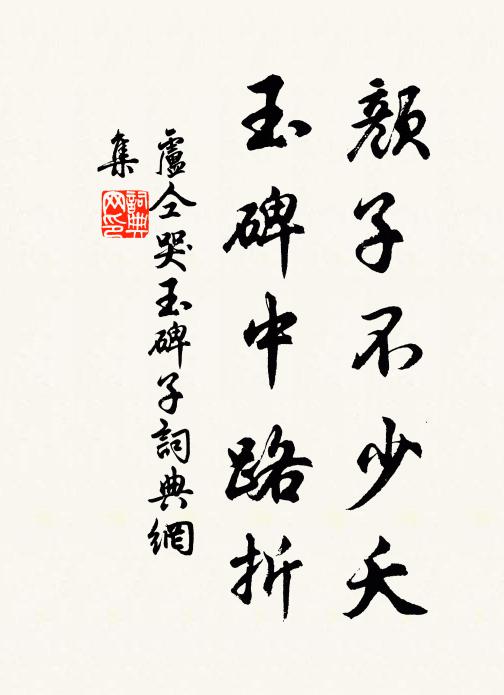 顏子不少夭
玉碑中路折
盧仝哭玉碑子詞典網
集
詞典網印